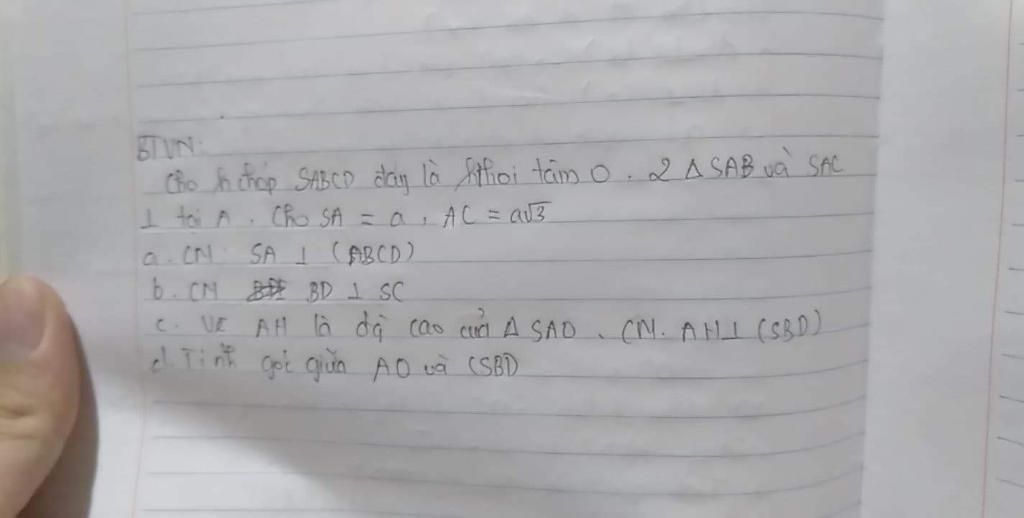 BTVN:
Cho h chóp SABCD đáy là hthoi tâm O. 2 Δ SAB và SAC
⊥ tại A. Cho SA = a, AC = a√3
a. CM SA ⊥ (ABCD)
b. CM BD ⊥ SC
c. Vẽ AH là đg cao của Δ SAO. CM. AH⊥ (SBD)
d. Tính góc giữa AO và (SBD)